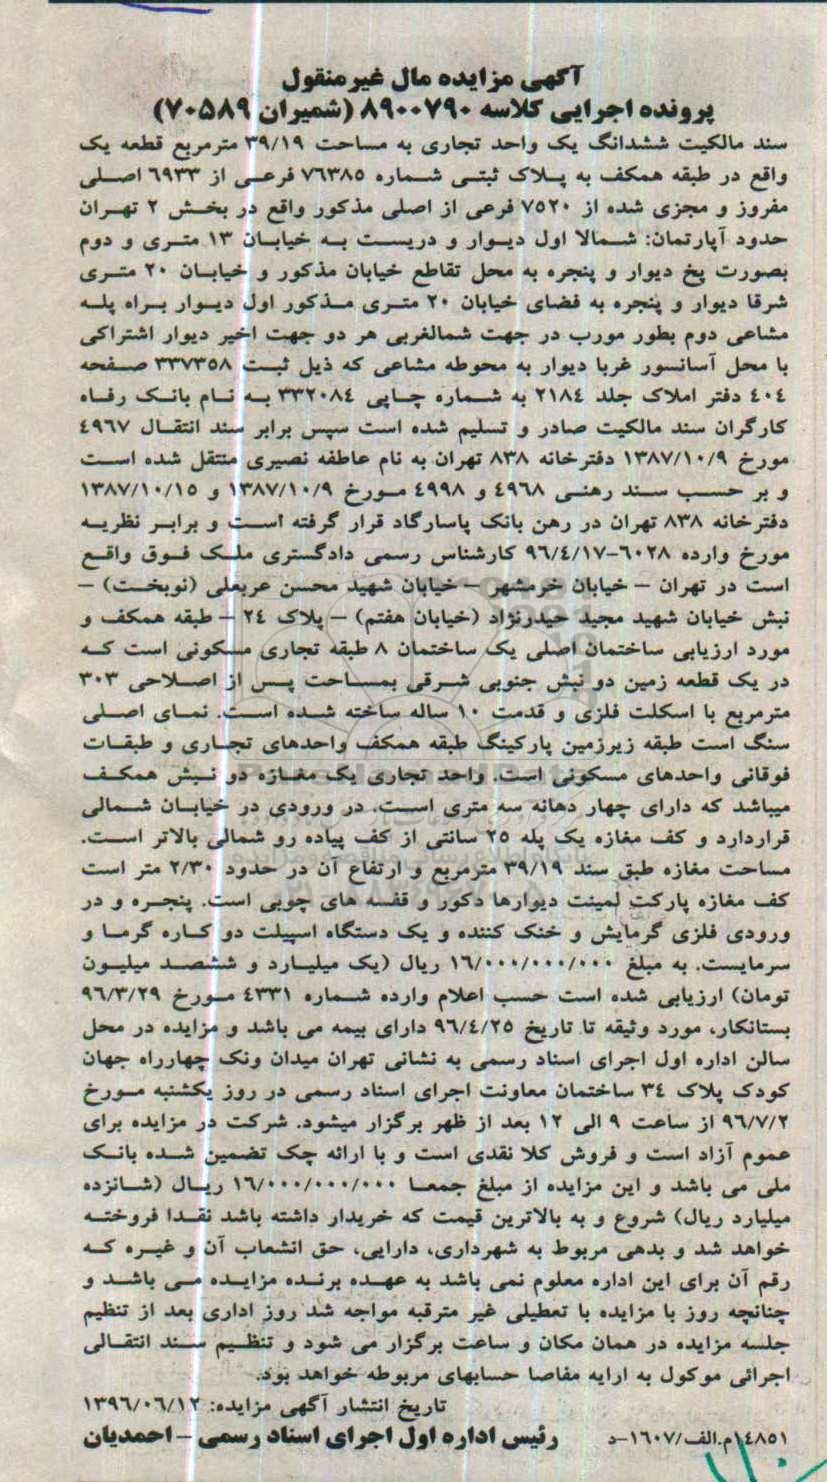 آگهی مزایده مال غیرمنقول
پرونده اجرایی کلاسه ۸۹۰۰۷۹۰ (شمیران ۷۰۵۸۹)
سند مالکیت ششدانگ یک واحد تجاری به مساحت ۳۹/۱۹ مترمربع قطعه یک
واقع در طبقه همکف به پلاک ثبتی شماره ۷۶۳۸۵ فرعی از ۶۹۳۳ اصلی
مفروز و مجزی شده از ۷۵۲۰ فرعی از اصلی مذکور واقع در بخش ۲ تهران
حدود آپارتمان: شمالا اول دیوار و دربست به خیابان ۱۳ متری و دوم
بصورت پخ دیوار و پنجره به محل تقاطع خیابان مذکور و خیابان ۲۰ متری
شرقا دیوار و پنجره به فضای خیابان ۲۰ متری مذکور اول دیوار براه پله
مشاعی دوم بطور مورب در جهت شمالغربی هر دو جهت اخیر دیوار اشتراکی
با محل آسانسور غربا دیوار به محوطه مشاعی که ذیل ثبت ۳۳۷۳۵۸ صفحه
۴۰۴ دفتر املاک جلد ۲۱۸۴ به شماره چاپی ۳۳۲۰۸۴ به نام بانک رفاه
کارگران سند مالکیت صادر و تسلیم شده است سپس برابر سند انتقال ۴۹۶۷
مورخ ۱۳۸۷/۱۰/۹ دفترخانه ۸۳۸ تهران به نام عاطفه نصیری منتقل شده است
و بر حسب سند رهنی ۴۹۶۸ و ۴۹۹۸ مورخ ۱۳۸۷/۱۰/۹ و ۱۳۸۷/۱۰/۱۵
دفترخانه ۸۳۸ تهران در رهن بانک پاسارگاد قرار گرفته است و برابر نظریه
مورخ وارده ۶۰۲۸-۹۶/۴/۱۷ کارشناس رسمی دادگستری ملک فوق واقع
است در تهران – خیابان خرمشهر – خیابان شهید محسن عربعلی (نوبخت) –
نبش خیابان شهید مجید حیدرنژاد (خیابان هفتم) – پلاک ۲۴ – طبقه همکف و
مورد ارزیابی ساختمان اصلی یک ساختمان ۸ طبقه تجاری مسکونی است که
در یک قطعه زمین دو نبش جنوبی شرقی بمساحت پس از اصلاحی ۳۰۳
مترمربع با اسکلت فلزی و قدمت ۱۰ ساله ساخته شده است. نمای اصلی
سنگ است طبقه زیرزمین پارکینگ طبقه همکف واحدهای تجاری و طبقات
فوقانی واحدهای مسکونی است. واحد تجاری یک مغازه دو نبش همکف
میباشد که دارای چهار دهانه سه متری است. در ورودی در خیابان شمالی
قراردارد و کف مغازه یک پله ۲۵ سانتی از کف پیاده رو شمالی بالاتر است.
مساحت مغازه طبق سند ۳۹/۱۹ مترمربع و ارتفاع آن در حدود ۲/۳۰ متر است
کف مغازه پارکت لمینت دیوارها دکور و قفسه های چوبی است. پنجره و در
ورودی فلزی گرمایش و خنک کننده و یک دستگاه اسپیلت دو کاره گرما و
سرمایست. به مبلغ ۱۶/۰۰۰/۰۰۰/۰۰۰ ریال (یک میلیارد و ششصد میلیون
تومان) ارزیابی شده است حسب اعلام وارده شماره ۴۳۳۱ مورخ ۹۶/۳/۲۹
بستانکار، مورد وثیقه تا تاریخ ۹۶/۴/۲۵ دارای بیمه می باشد و مزایده در محل
سالن اداره اول اجرای اسناد رسمی به نشانی تهران میدان ونک چهارراه جهان
کودک پلاک ۳۴ ساختمان معاونت اجرای اسناد رسمی در روز یکشنبه مورخ
۹۶/۷/۲ از ساعت ۹ الی ۱۲ بعد از ظهر برگزار میشود. شرکت در مزایده برای
عموم آزاد است و فروش کلا نقدی است و با ارائه چک تضمین شده بانک
ملی می باشد و این مزایده از مبلغ جمعا ۱۶/۰۰۰/۰۰۰/۰۰۰ ریال (شانزده
میلیارد ریال) شروع و به بالاترین قیمت که خریدار داشته باشد نقدا فروخته
خواهد شد و بدهی مربوط به شهرداری، دارایی، حق انشعاب آن و غیره که
رقم آن برای این اداره معلوم نمی باشد به عهده برنده مزایده می باشد و
چنانچه روز با مزایده با تعطیلی غیر مترقبه مواجه شد روز اداری بعد از تنظیم
جلسه مزایده در همان مکان و ساعت برگزار می شود و تنظیم سند انتقالی
اجرائی موکول به ارایه مفاصا حسابهای مربوطه خواهد بود.
تاریخ انتشار آگهی مزایده: ۱۳۹۶/۰۶/۱۲
۱۴۸۵۱م.الف/۱۶۰۷-د رئیس اداره اول اجرای اسناد رسمی – احمدیان